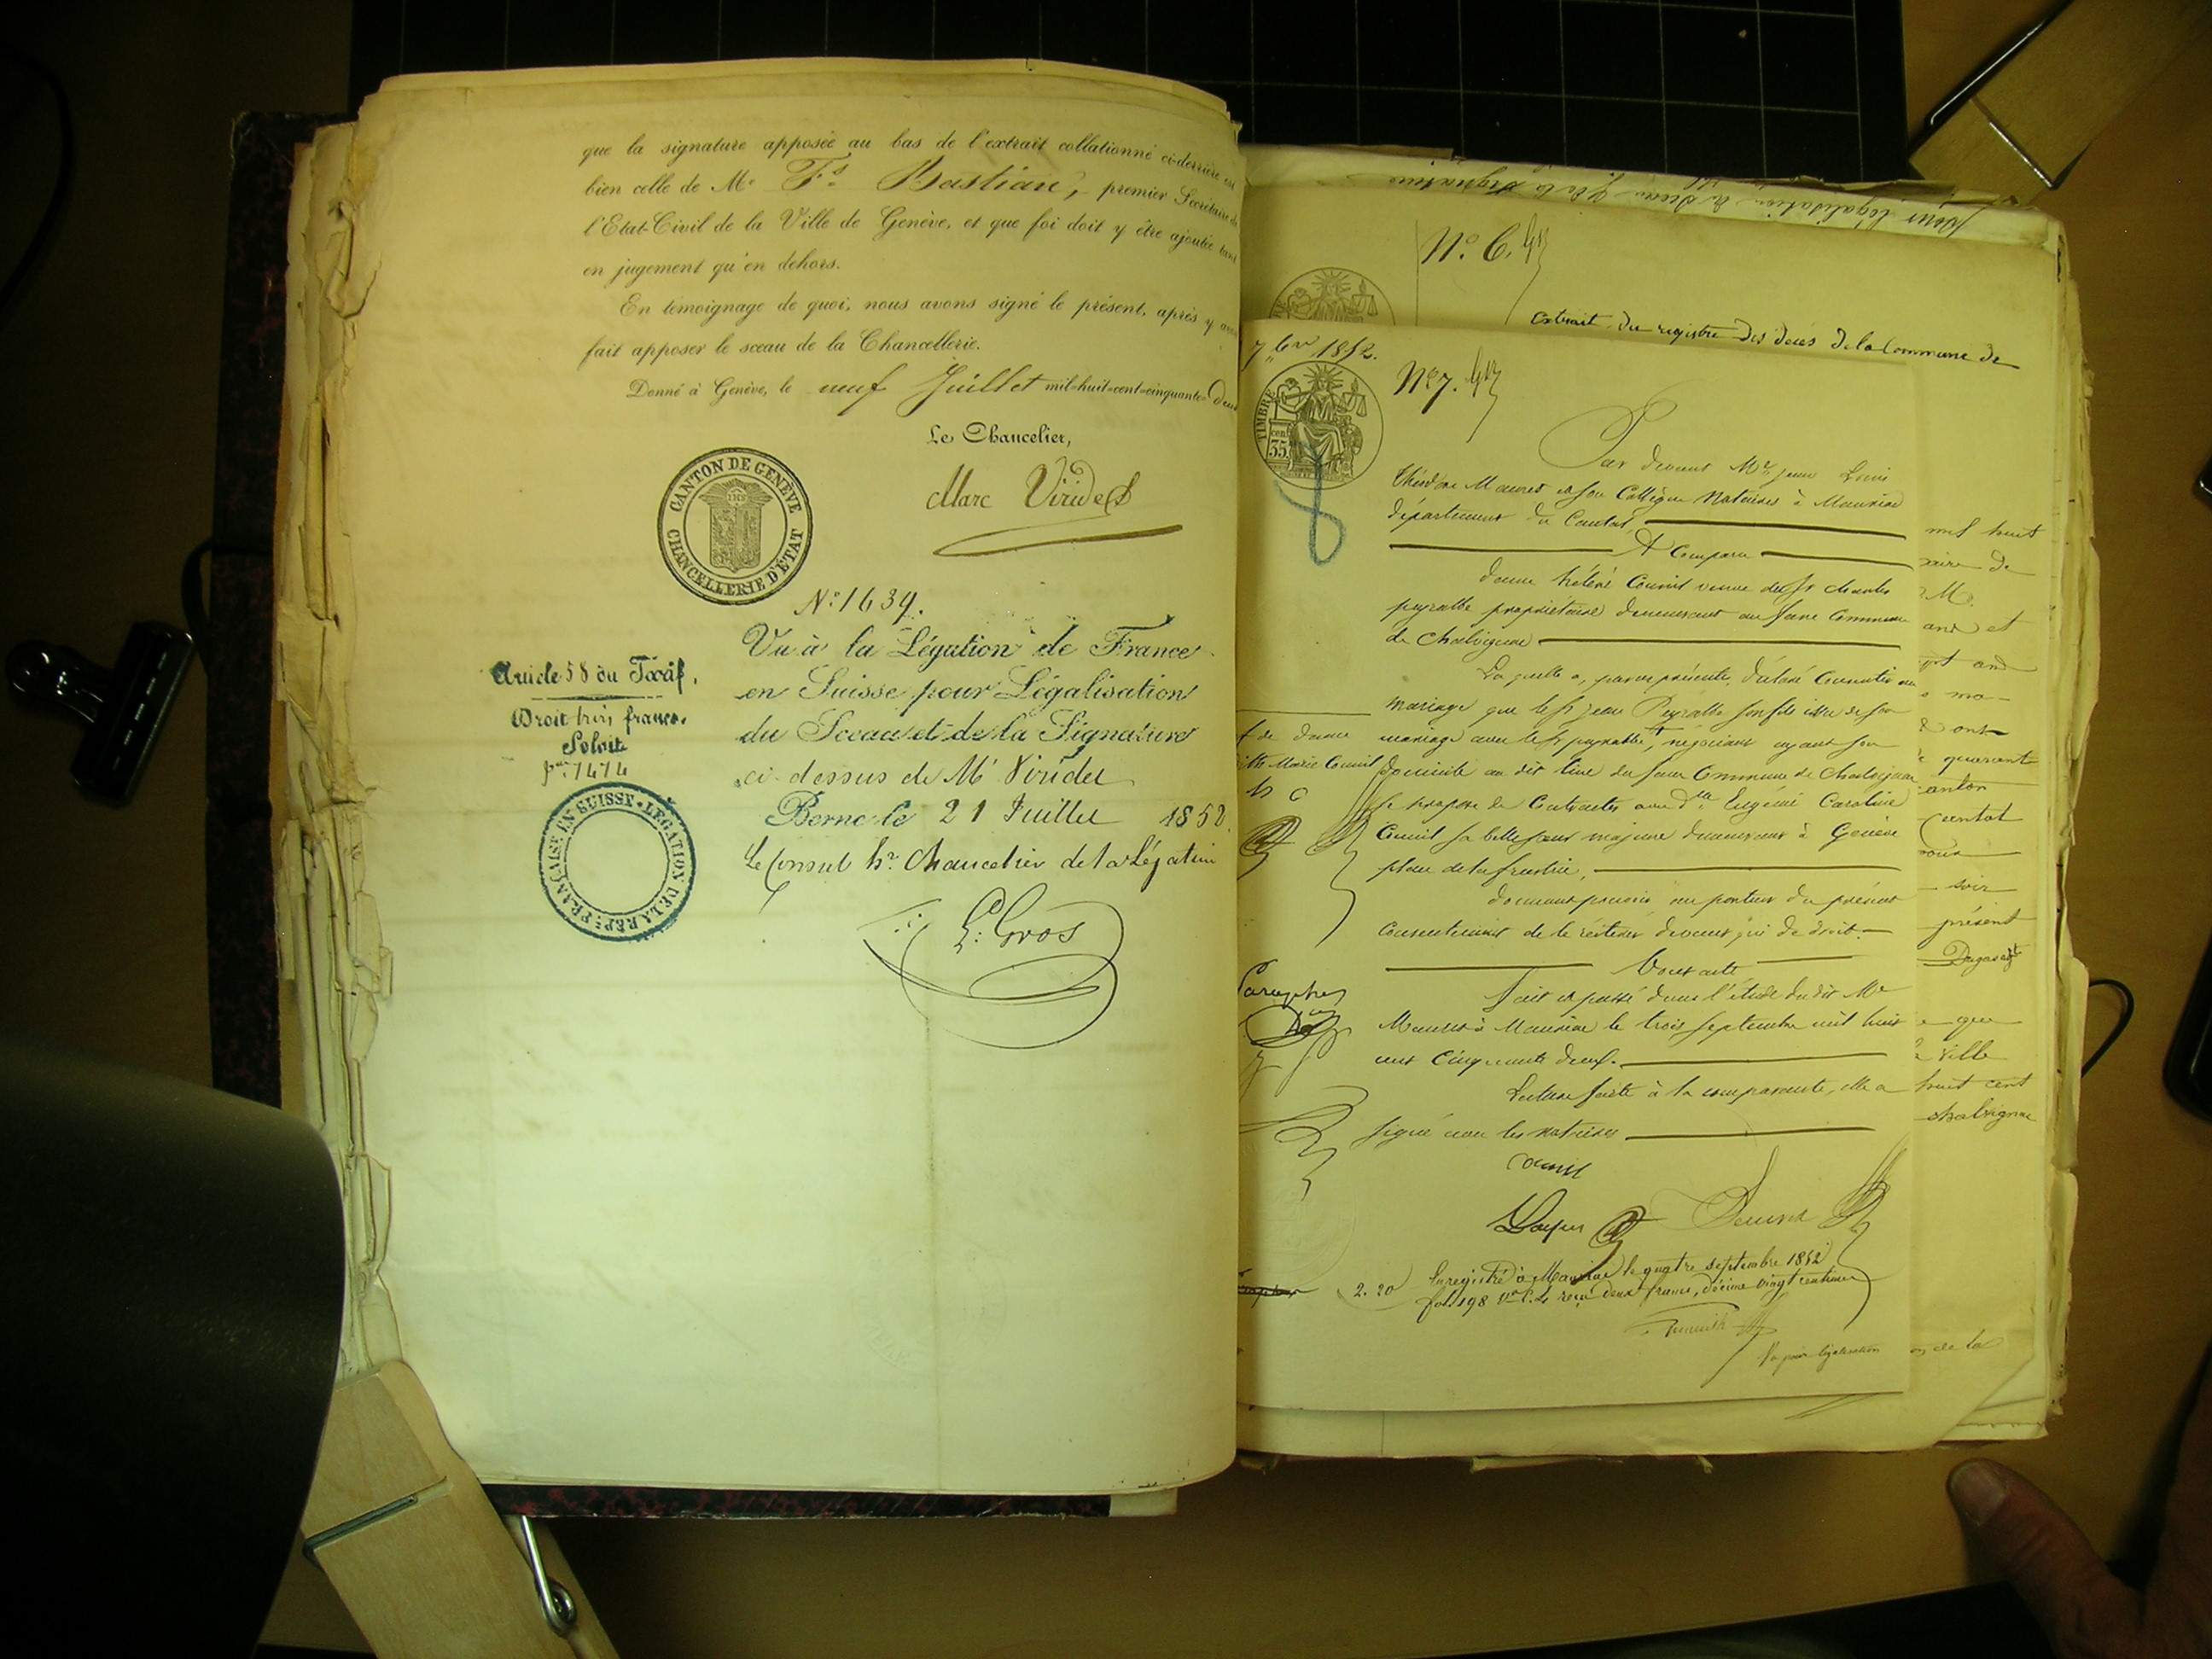 que la signature apposée au bas de l'extrait collationné ci-derrière est
bien celle de Mr. Fs. Bastian, premier Secrétaire de
l'Etat-Civil de la Ville de Genève, et que foi doit y être ajoutée tant
en jugement qu'en dehors.
En témoignage de quoi, nous avons signé le présent, après y avoir
fait apposer le sceau de la Chancellerie.
Donné à Genève, le neuf Juillet mil-huit-cent-cinquante-Deux
Le Chancelier,
Marc Viridet
CANTON DE GENÈVE
CHANCELLERIE D'ÉTAT
No. 1639.
Vu à la Légation de France
en Suisse pour Légalisation
du Sceau et de la Signature
ci-dessus de Mr Viridet
Berne le 21 Juillet 1852.
Le Consul hre. Chancelier de la Légation
G. Gros
Article 58 du Tarif.
Droit trois francs.
7474
LÉGATION DE LA RÉP. FRANÇAISE EN SUISSE
pour légalisation du Sceau et de la Signature
No. 6.
extrait du registre des décès de la Commune de
7bre 1852.
No 7.
TIMBRE
35 cent
Par devant Me jean Louis
théodore Mauret et son Collègue Notaires à Mauriac
département du Cantal,
A Comparu
dame hélène Counil veuve du Sr charles
peyralbe propriétaire demeurant au fane Commune
de Chalvignac
Laquelle a, par ces présentes, déclaré Consentir au
mariage que le Sr jean Peyralbe son fils issu de son
mariage avec le Sr peyralbe, négociant ayant son
domicile au dit lieu du fane Commune de Chalvignac
se propose de Contracter avec Dlle Eugénie Caroline
Counil sa belle soeur majeure demeurant à Genève
place de la fusterie,
donnant pouvoir au porteur du présent
Consentement de le réitérer devant qui de droit.
Dont acte
Fait et passé dans l'étude du dit Me
Mauret à Mauriac le trois septembre mil huit
cent cinquante deux.
Lecture faite à la comparante, elle a
signé avec les notaires
Counil
Enregistré à Mauriac le quatre septembre 1852
fol. 198 vo c. 4 reçu deux francs, décime vingt centimes
2.20
Vu pour légalisation
de dame
Marie Counil
Paraphes
mil huit
maire de
M.
ans et
ont
quarant
canton
Cantal
soir
présent
que
ville
huit cent
chalvignac
de la